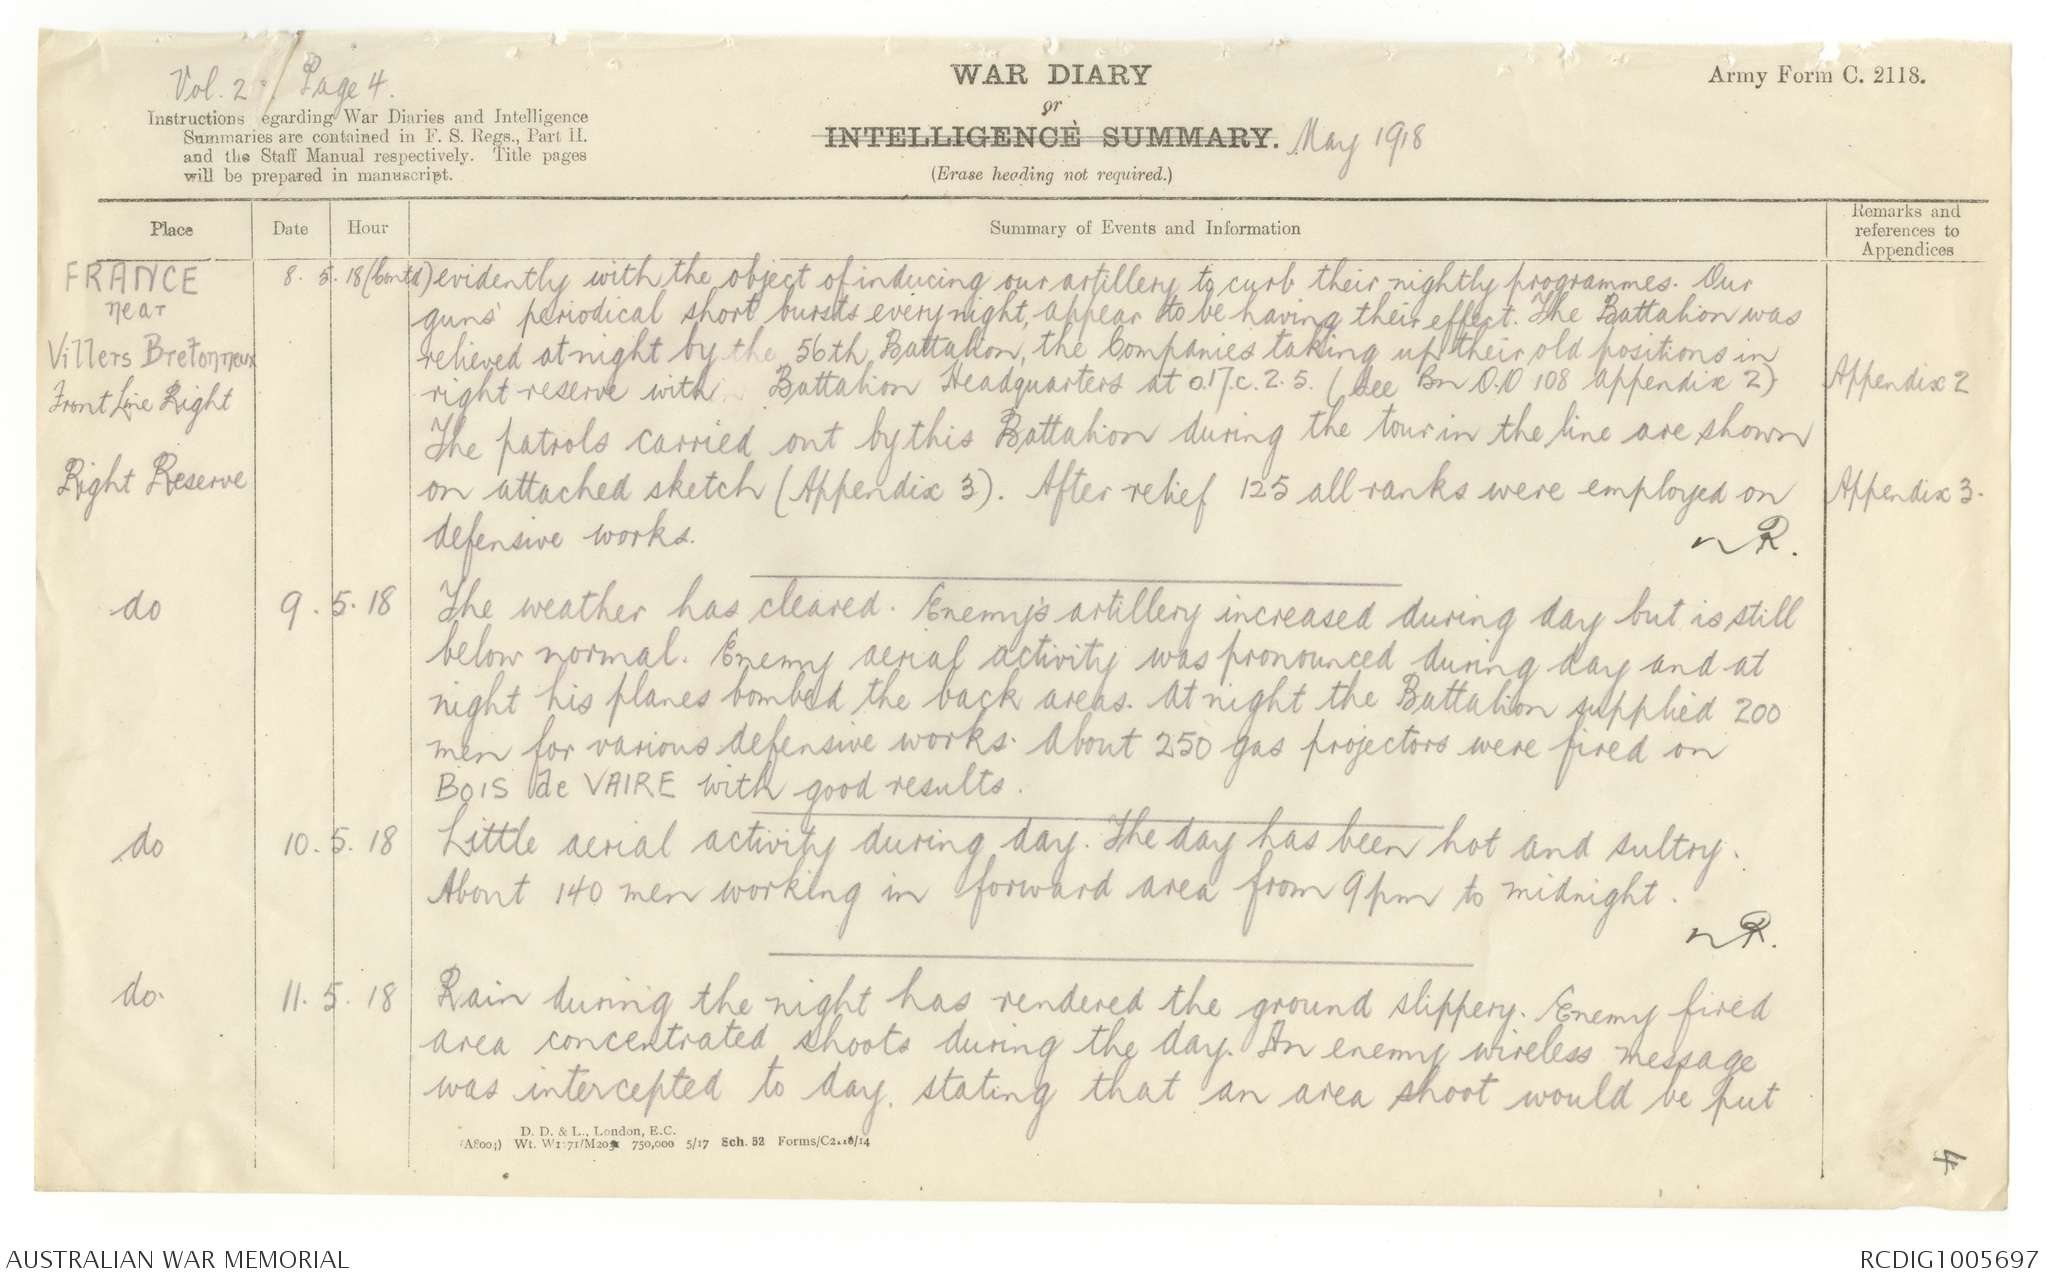 Vol. 2 / Page 4.
WAR DIARY
or
INTELLIGENCE SUMMARY. May 1918
(Erase heading not required.)
Army Form C. 2118.
Instructions egarding War Diaries and Intelligence
Summaries are contained in F. S. Regs., Part II.
and the Staff Manual respectively. Title pages
will be prepared in manuscript.
Place Date Hour Summary of Events and Information Remarks and references to Appendices
FRANCE 8. 5. 18 (Contd) evidently with the object of inducing our artillery to curb their nightly programmes. Our
near guns' periodical short bursts every night, appear to be having their effect. The Battalion was
Villers Bretonneux relieved at night by the 56th Battalion, the Companies taking up their old positions in
Front Line Right right reserve with Battalion Headquarters at O.17.c.2.5. (See Bn O.O 108 Appendix 2) Appendix 2
The patrols carried out by this Battalion during the tour in the line are shown
Right Reserve on attached sketch (Appendix 3). After relief 125 all ranks were employed on Appendix 3.
defensive works.
do 9. 5. 18 The weather has cleared. Enemy's artillery increased during day but is still
below normal. Enemy aerial activity was pronounced during day and at
night his planes bombed the back areas. At night the Battalion supplied 200
men for various defensive works. About 250 gas projectors were fired on
BOIS de VAIRE with good results.
do 10. 5. 18 Little aerial activity during day. The day has been hot and sultry.
About 140 men working in forward area from 9pm to midnight.
do. 11. 5. 18 Rain during the night has rendered the ground slippery. Enemy fired
area concentrated shoots during the day. An enemy wireless message
was intercepted to day, stating that an area shoot would be put
D. D. & L., London, E.C.
750,000 5/17 Sch. 52
4
AUSTRALIAN WAR MEMORIAL
RCDIG1005697